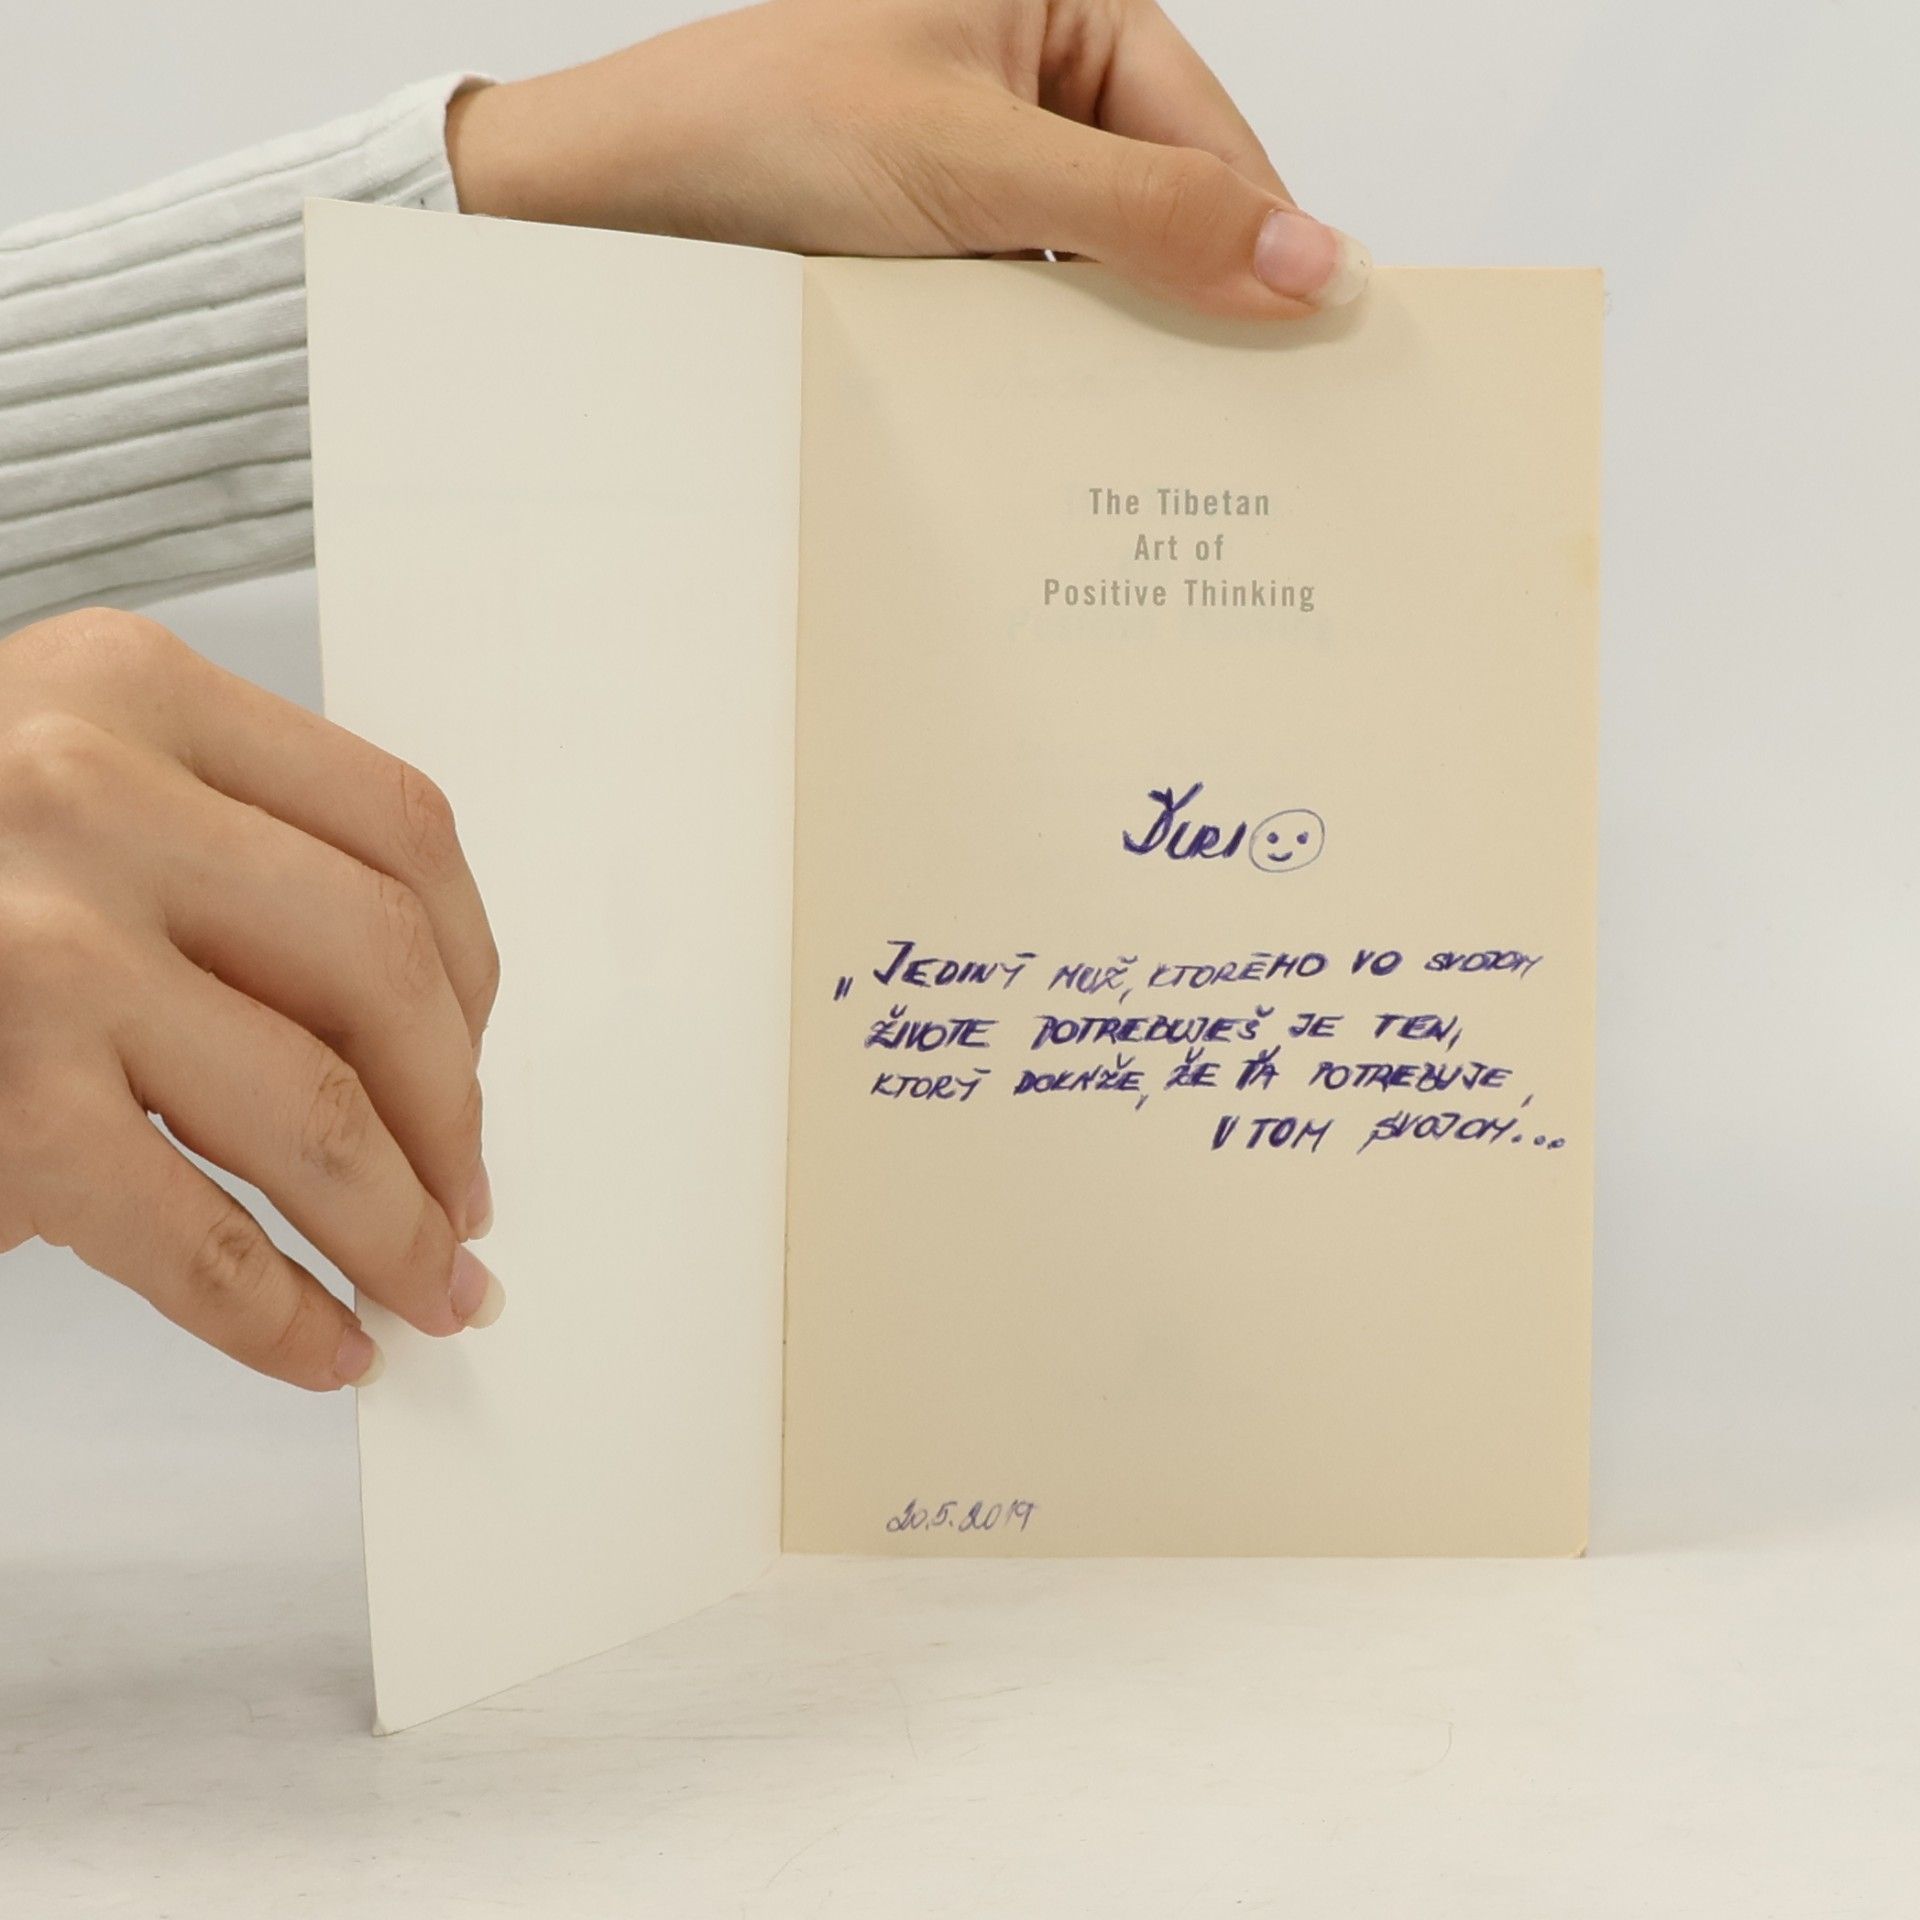 The Tibetan
Art of
Positive Thinking
Ďuri
„JEDINÝ MUŽ, KTORÉHO VO SVOJOM
ŽIVOTE POTREBUJEŠ JE TEN,
KTORÝ DOKÁŽE, ŽE ŤA POTREBUJE,
V TOM SVOJOM...
20.5.2019